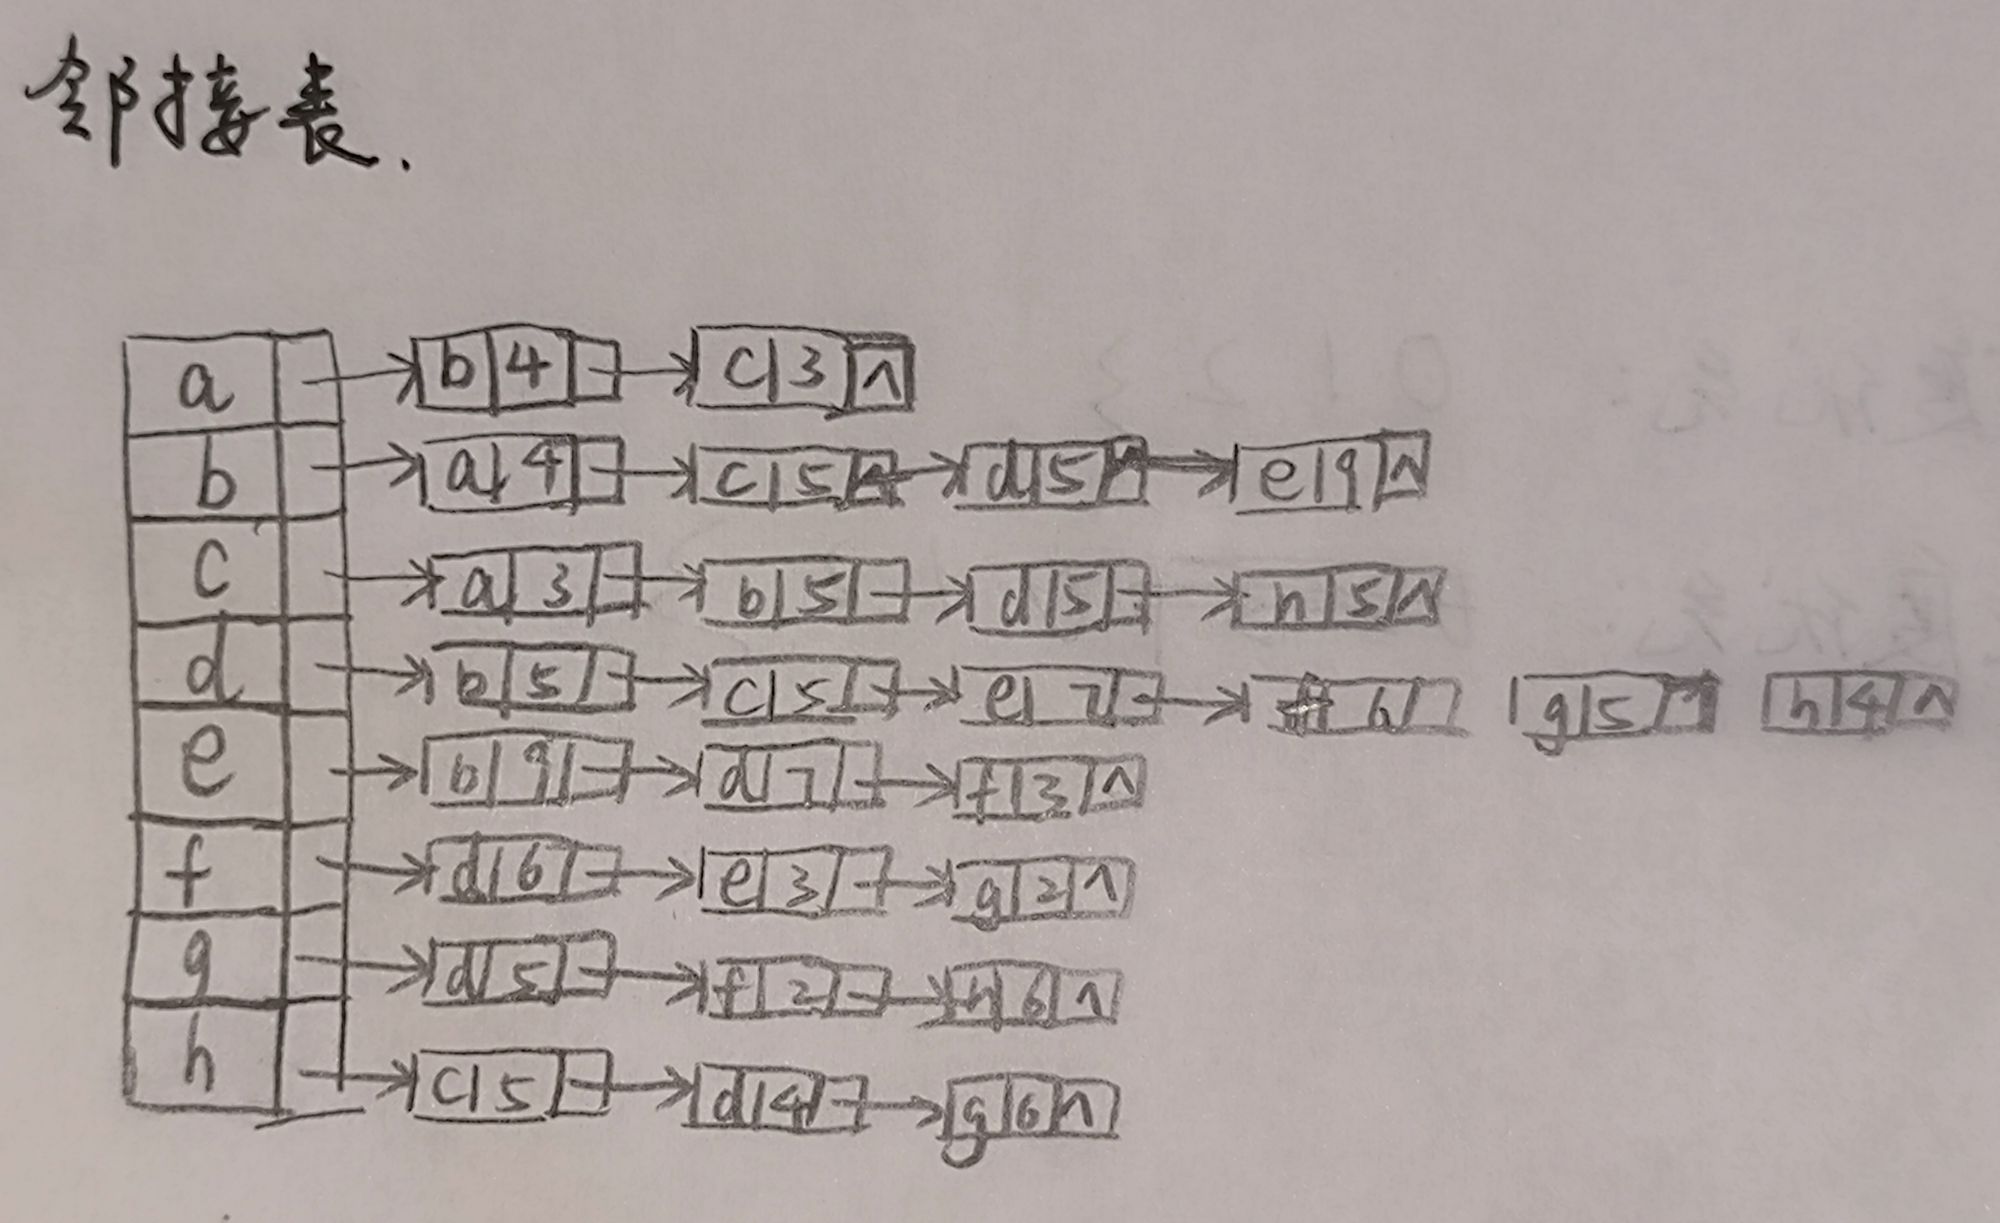 邻接表.
a b 4 c 3 ^
b a 4 c 5 d 5 e 9 ^
c a 3 b 5 d 5 h 5 ^
d b 5 c 5 e 7 f 6 g 5 h 4 ^
e b 9 d 7 f 3 ^
f d 6 e 3 g 2 ^
g d 5 f 2 h 6 ^
h c 5 d 4 g 6 ^